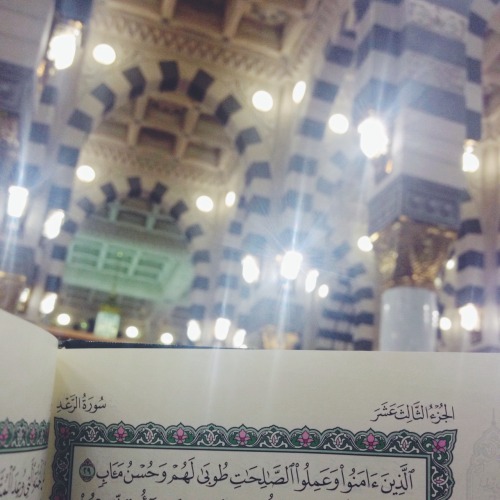 سُورَةُ الرَّعْدِ
الجُزْءُ الثَّالِثَ عَشَرَ
ٱلَّذِينَ ءَامَنُوا۟ وَعَمِلُوا۟ ٱلصَّـٰلِحَـٰتِ طُوبَىٰ لَهُمْ وَحُسْنُ مَـَٔابٍ ٢٩